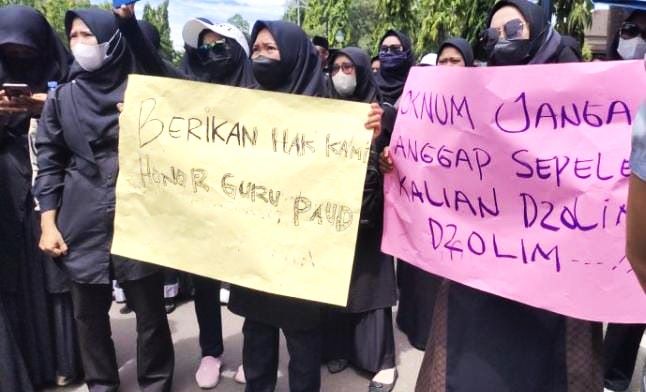 BERIKAN HAK KAMI
HONOR GURU PAUD
OKNUM JANGA
ANGGAP SEPELE
KALIAN DZOLIM
DZOLIM.....!